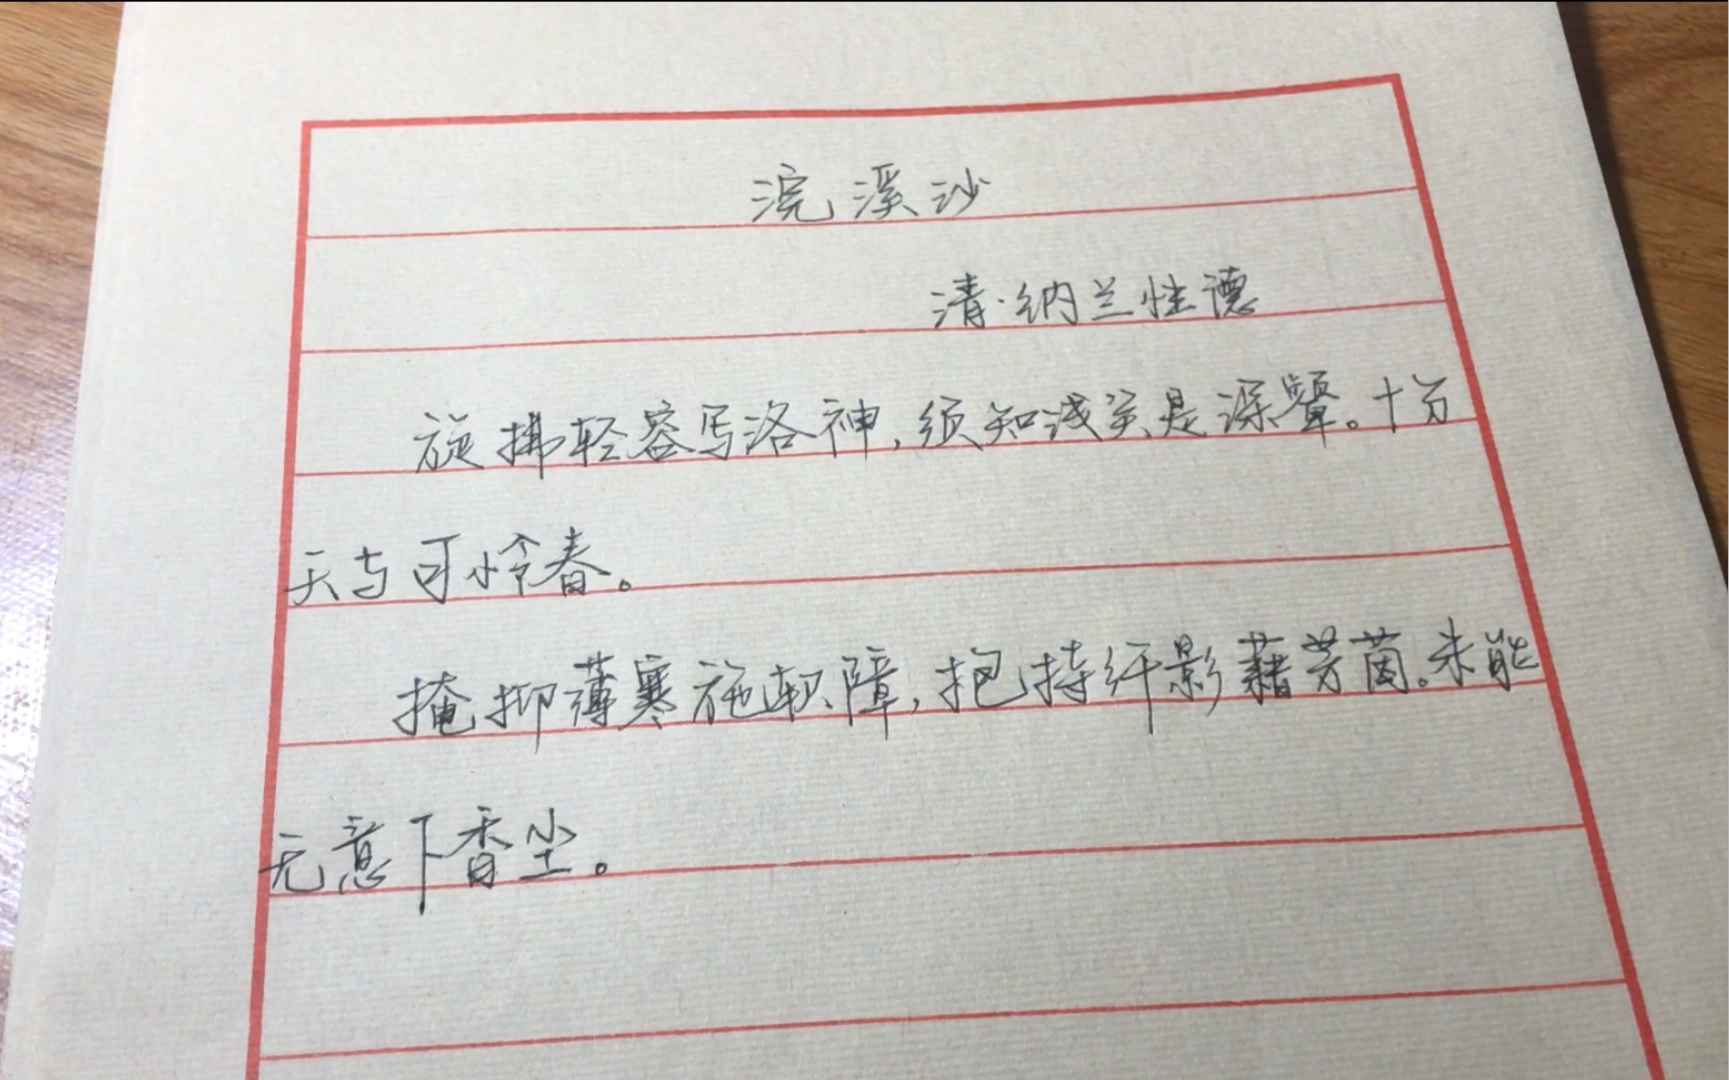 浣溪沙
清·纳兰性德
旋拂轻容写洛神,须知浅笑是深颦。十分
天与可怜春。
掩抑薄寒施软障,抱持纤影藉芳茵。未能
无意下香尘。